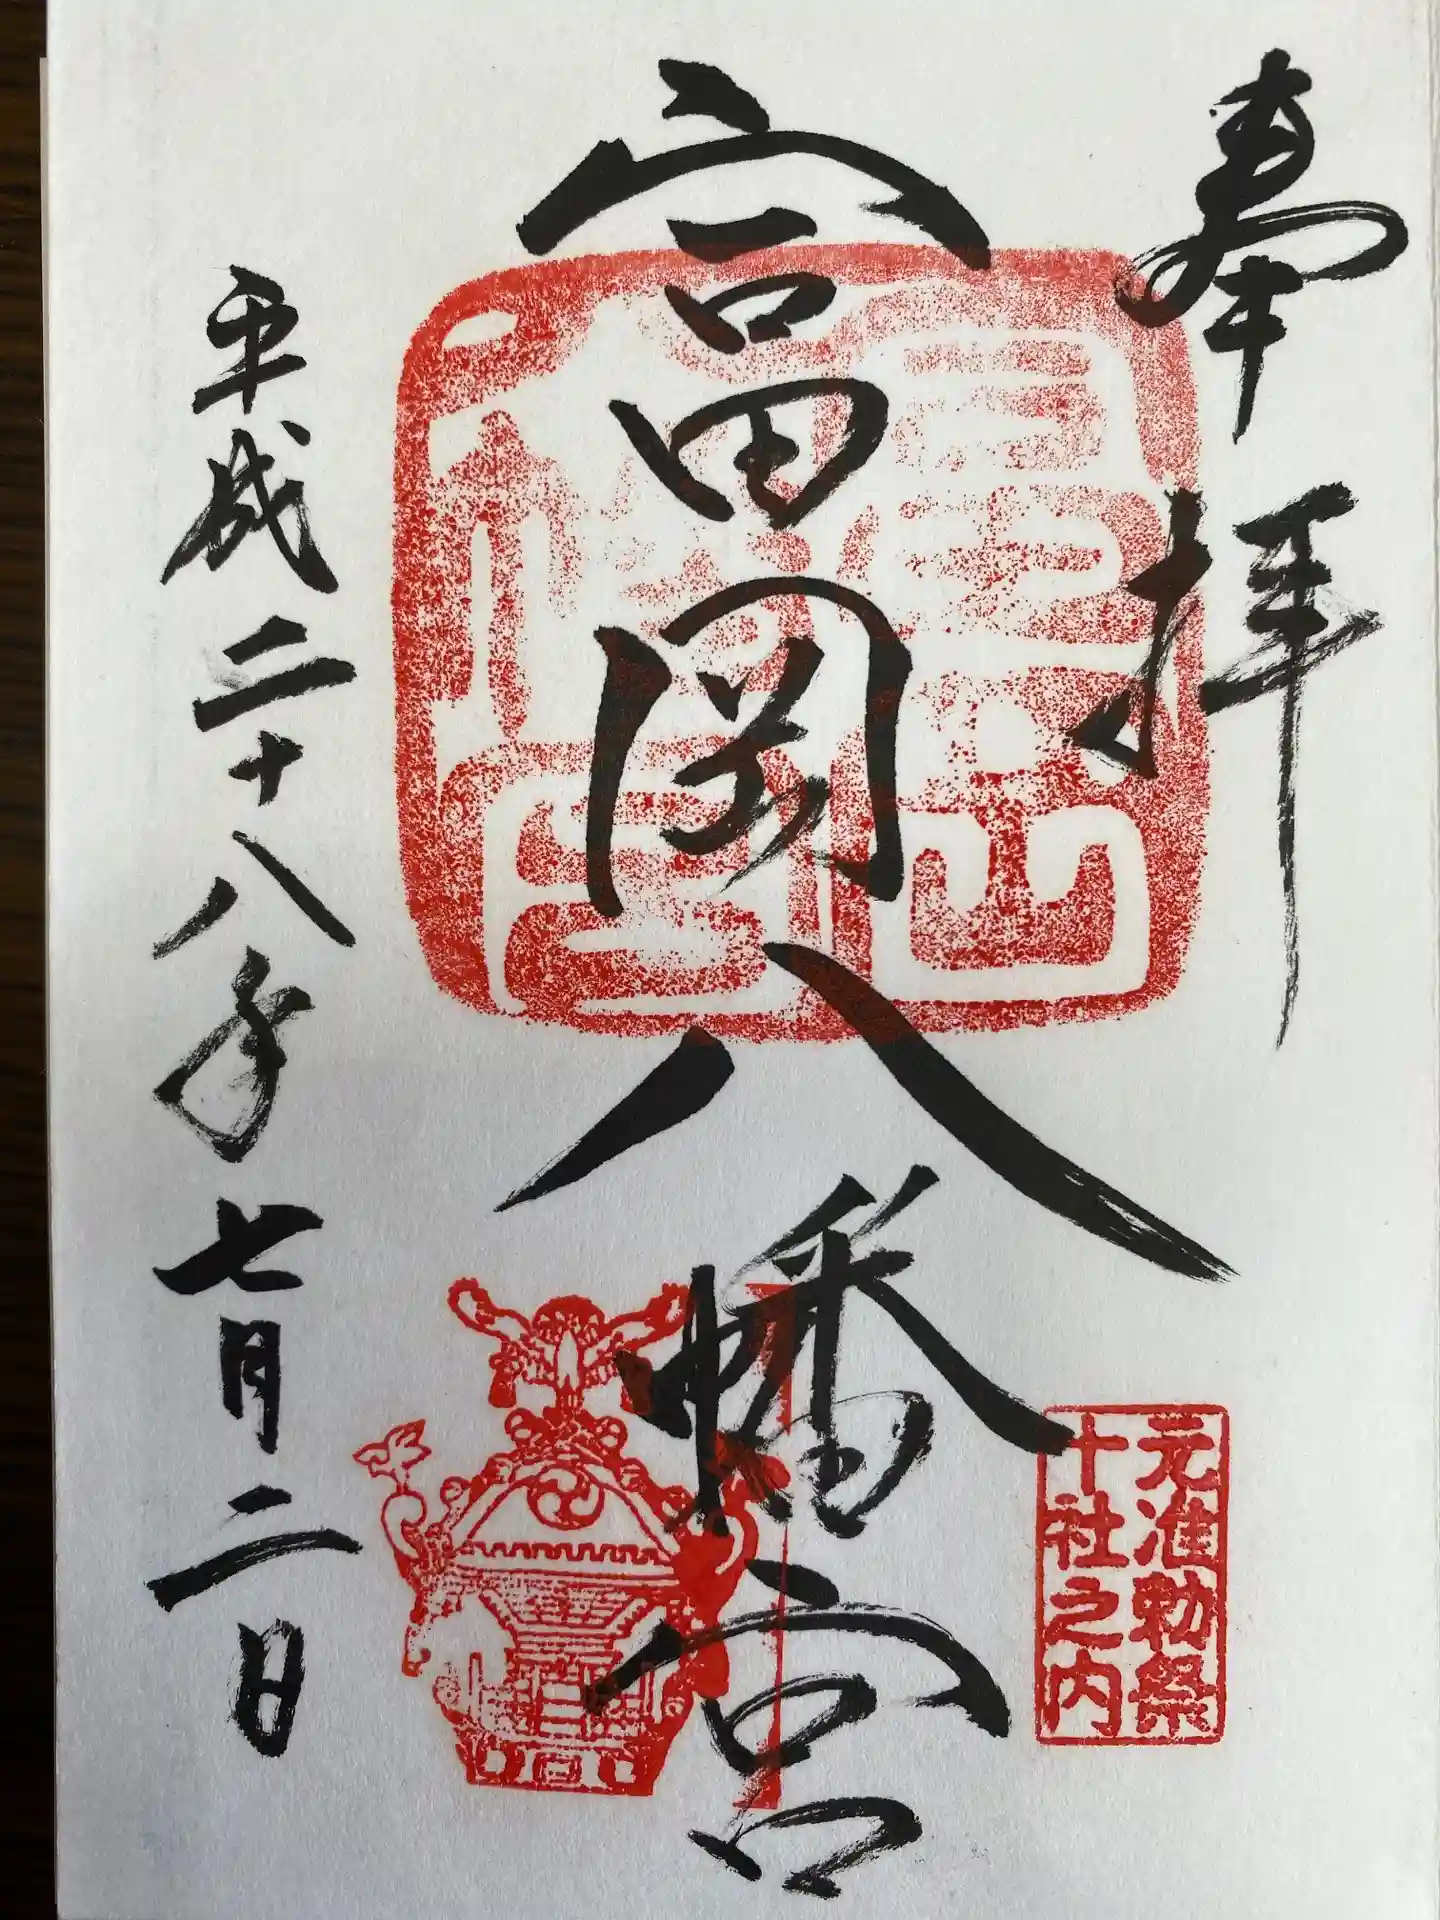 奉拝
富岡八幡宮
元准勅祭
十社之内
平成二十八年七月二日